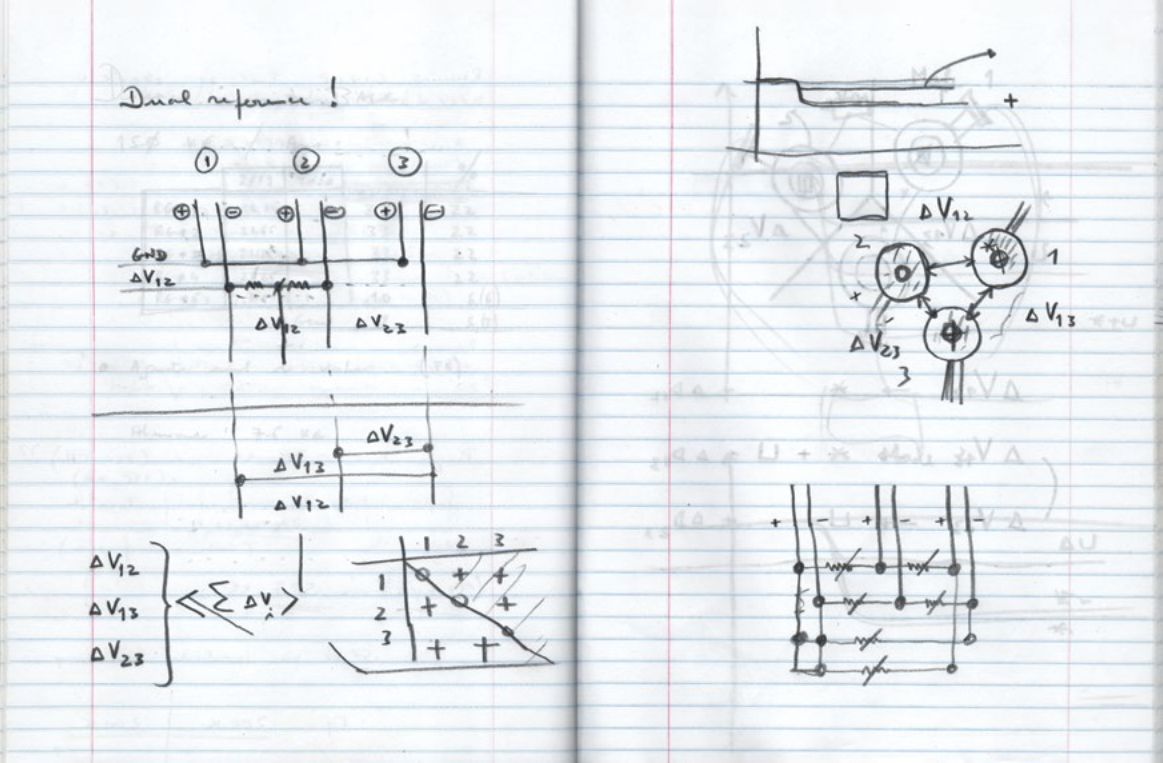 Dual reference !
① ② ③
⊕ ⊖ ⊕ ⊖ ⊕ ⊖
GND
ΔV12
ΔV12 ΔV23
ΔV23
ΔV13
ΔV12
ΔV12
ΔV13
ΔV23
< Σ ΔVi >
1 2 3
1 + +
2 + +
3 + +
+
ΔV12
2
1
ΔV13
ΔV23
3
+ - + - + -